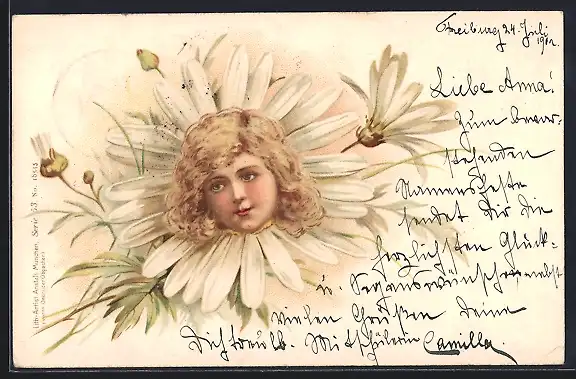 Freiburg 24. Juli
Liebe Anna!
Zum bevor-
stehenden
Namensfeste
sendet Dir die
herzlichsten Glück-
u. Segenswünsche nebst
vielen Grüßen Deine
Mitschülerin Camilla.
Lith.-Artist. Anstalt München,
Serie 53 No.